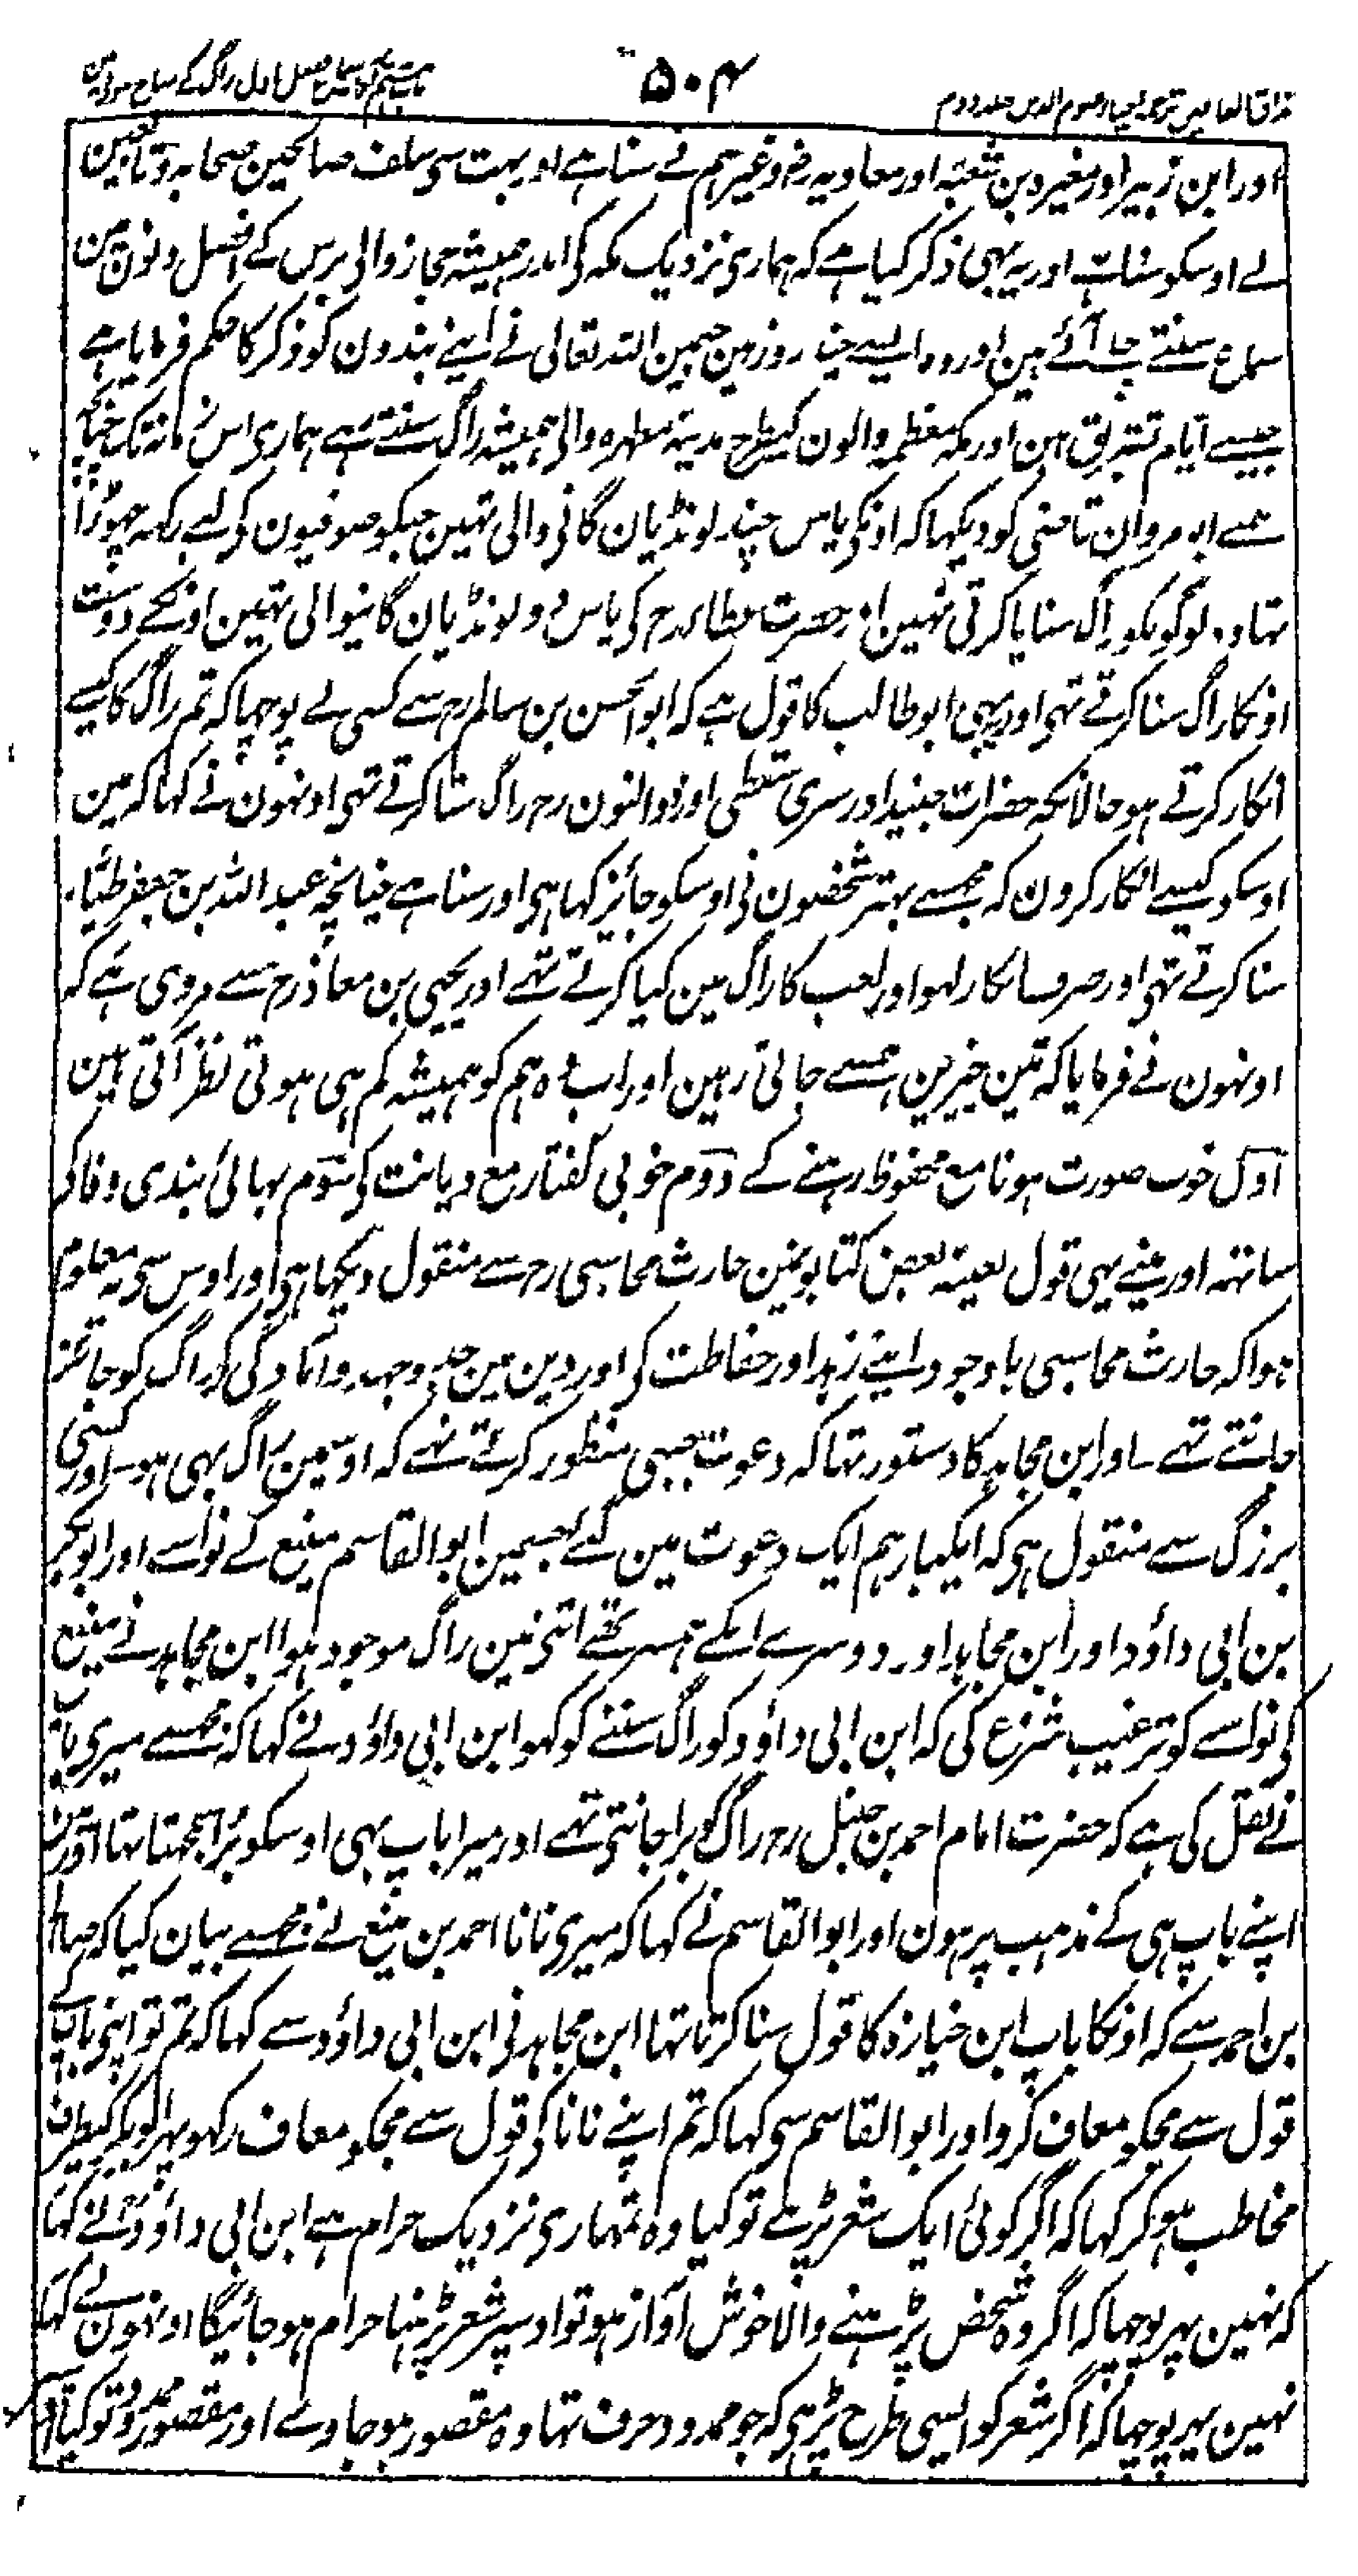 مذاق العارفین ترجمہ احیاء علوم الدین جلد دوم
۵۰۴
باب ہشتم فصل اول راگ کے مباح ہونے مین
اور ابن زبیر اور مغیرہ بن شعبہ اور معاویہ رض وغیرہم نے سنا ہے اور بہت سی سلف صالحین صحابہ و تابعین
نے اوسکو سنا ہے اور یہ بہی ذکر کیا ہے کہ ہماری نزدیک مکہ کی اندر ہمیشہ حجاز والی برس کے افضل دنون مین
سماع سنتے چلے آئے ہین اور وہ ایسے چند روز ہین جنمین اللہ تعالی نے اپنے بندون کو ذکر کا حکم فرمایا ہے
جیسے ایام تشریق ہین اور مکہ معظمہ والون کیطرح مدینہ مطہرہ والی ہمیشہ راگ سنتے رہے ہماری اس زمانہ تک چنانچہ
ہمنے ابو مروان قاضی کو دیکہا کہ اونکی پاس چند لونڈیان گانی والی تہین جنکو صوفیون کی لیے رکہہ چہوڑا
تہا وہ لوگونکو راگ سنایا کرتی تہین اور حضرت عطا رح کی پاس دو لونڈیان گانیوالی تہین اونکے دوست
اونکا راگ سنا کرتے تہی اور یہ بہی ابو طالب کا قول ہے کہ ابو الحسن بن سالم رح سے کسی نے پوچہا کہ تم راگ کا کیسے
انکار کرتے ہو حالانکہ حضرات جنید اور سری سقطی اور ذوالنون رح راگ سنا کرتے تہی اونہون نے کہا کہ مین
اوسکو کیسے انکار کرون کہ مجہسے بہتر شخصون نی اوسکو جائز کہا ہی اور سنا ہے چنانچہ عبد اللہ بن جعفر طیار
سنا کرتے تہی اور صرف انکار لہو اور لعب کا راگ مین کیا کرتے تہے اور یحیی بن معاذ رح سے مروی ہے کہ
اونہون نے فرمایا کہ تین چیزین ہمسے جاتی رہین اور اب وہ ہم کو ہمیشہ کم ہی ہوتی نظر آتی ہین
اول خوب صورت ہونا مع محفوظ رہنے کے دوم خوبی گفتار مع دیانت کی سوم بہائی بندی وفا کی
ساتہہ اور مینے یہی قول بعینہ بعض کتابونمین حارث محاسبی رح سے منقول دیکہا ہی اور اوس سی یہ معلوم
ہوا کہ حارث محاسبی باوجود اپنے زہد اور حفاظت کی اور دین مین جد و جہد و آمادگی کی راگ کو جائز
جانتے تہے ۔ اور ابن مجاہد کا دستور تہا کہ دعوت جبہی منظور کرتے تہے کہ اوسمین راگ بہی ہو ۔ اور کسی
بزرگ سے منقول ہی کہ ایکبار ہم ایک دعوت مین گئے جسمین ابو القاسم منیع کے نواسے اور ابو بکر
بن ابی داؤد اور ابن مجاہد اور دوسرے انکے ہمسر تہے اتنی مین راگ موجود ہوا ابن مجاہد نے منیع
کی نواسے کو ترغیب شروع کی کہ ابن ابی داؤد کو راگ سننے کو کہو ابن ابی داؤد نے کہا کہ مجہسے میری باپ
نے نقل کی ہے کہ حضرت امام احمد بن حنبل رح راگ کو برا جانتی تہے اور میرا باپ بہی اوسکو برا سمجہتا تہا اور مین
اپنے باپ ہی کے مذہب پر ہون اور ابو القاسم نے کہا کہ میری نانا احمد بن منیع نے مجہسے بیان کیا کہ صالح
بن احمد سے کہ اونکا باپ ابن خبازہ کا قول سنا کرتا تہا ابن مجاہد نی ابن ابی داؤد سے کہا کہ تم تو اپنی باپ کے
قول سے مجکو معاف کرو اور ابو القاسم سی کہا کہ تم اپنے نانا کی قول سے مجکو معاف رکہو پہر ابو بکر کیطرف
مخاطب ہو کر کہا کہ اگر کوئی ایک شعر پڑہے تو کیا وہ تمہاری نزدیک حرام ہے ابن ابی داؤد نے کہا
کہ نہین پہر پوچہا کہ اگر وہ شخص پڑہنے والا خوش آواز ہو تو اوسپر شعر پڑہنا حرام ہو جائیگا اونہون نے کہا
نہین پہر پوچہا کہ اگر شعر کو ایسی طرح پڑہی کہ جو ممدود حرف تہا وہ مقصور ہو جاوے اور مقصور ممدود تو کیا